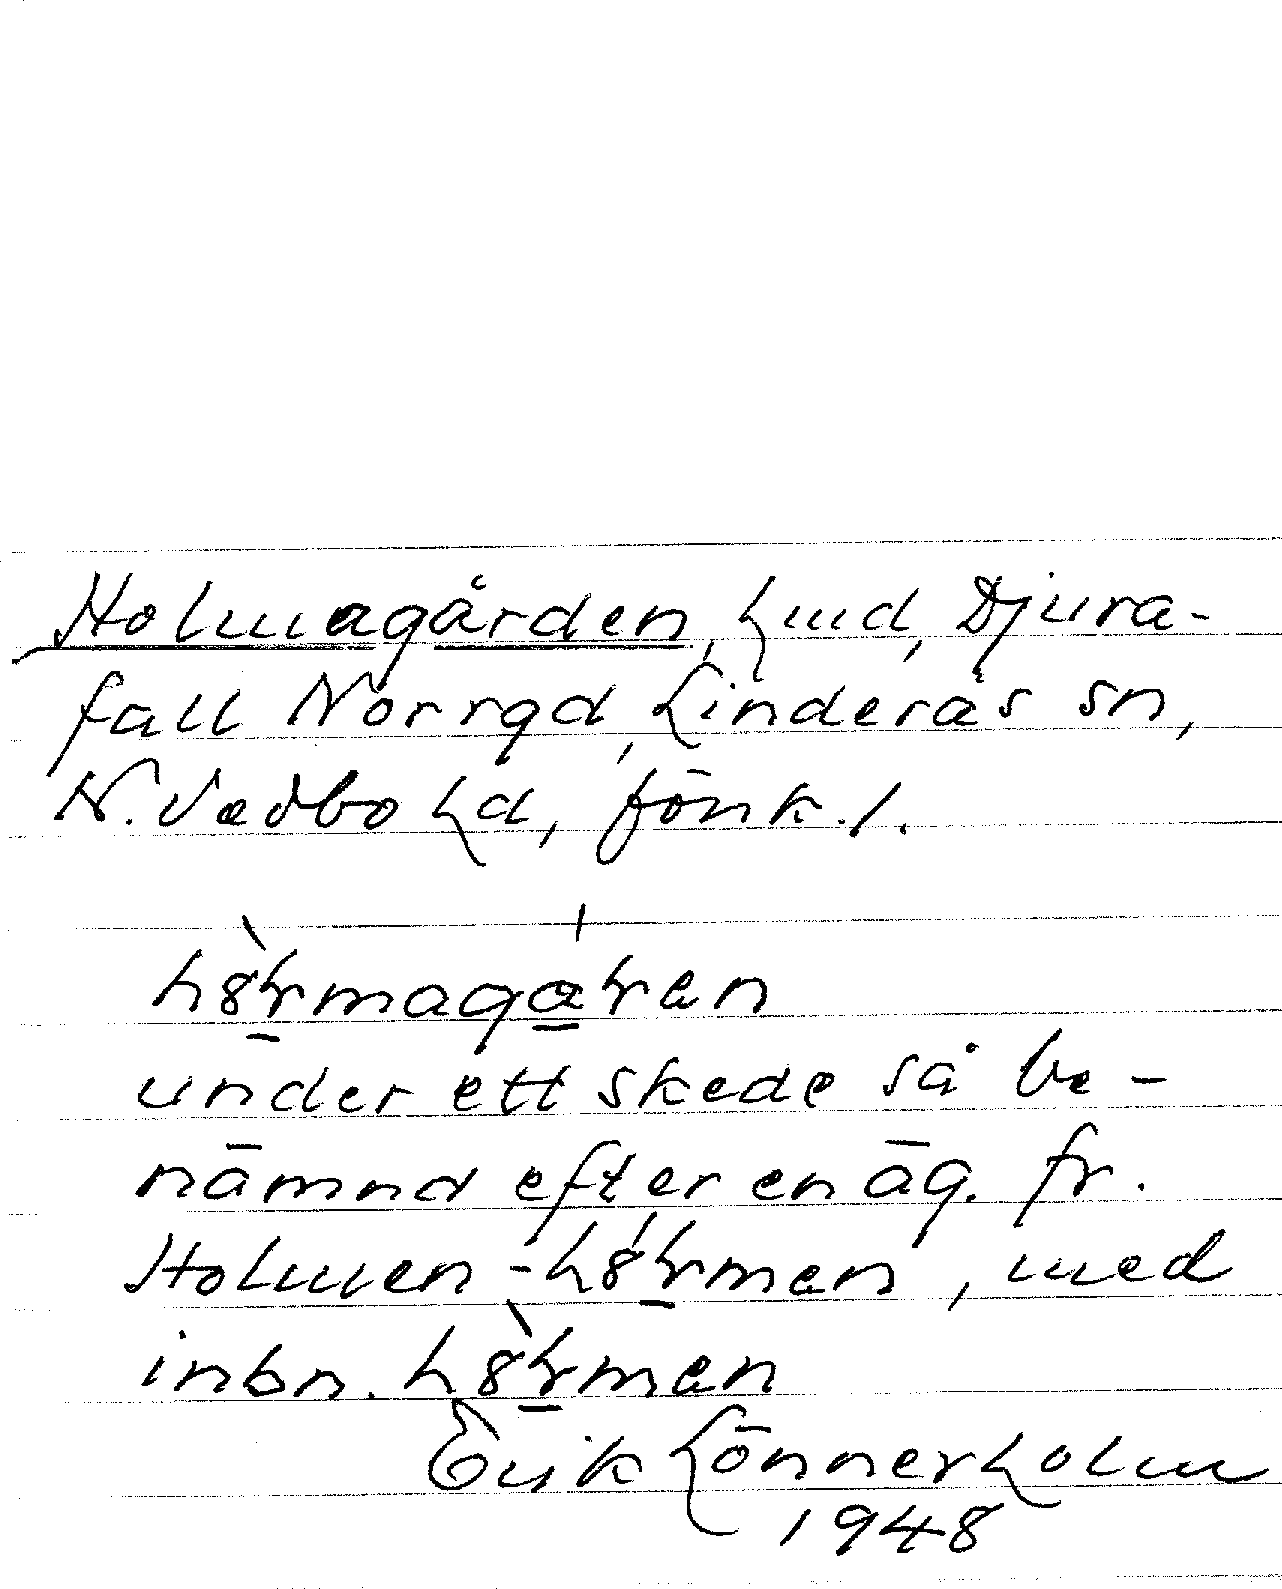 Holmagården, hmd, Djura-
fall Norrgd, Linderås sn,
N. Vedbo hd, Jönk. l.
under ett skede så be-
nämnd efter en äg. fr.
Holmen - , med
inbn.
Erik Lönnerholm
1948